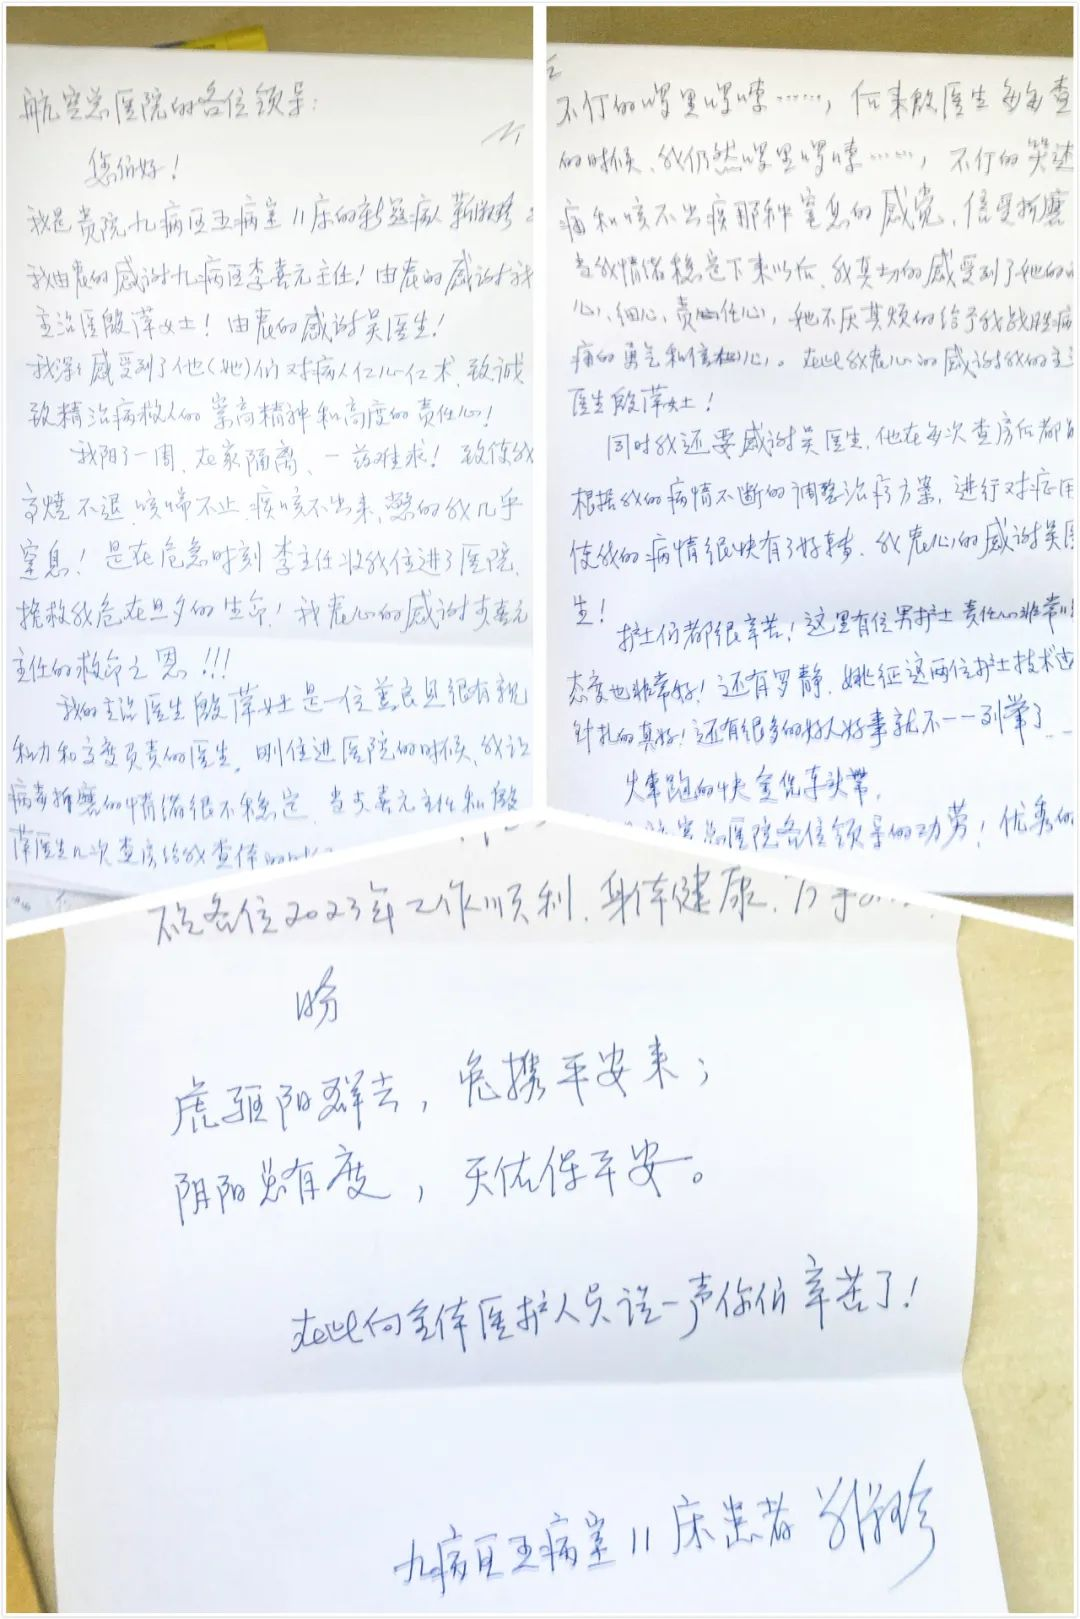 航空总医院的各位领导:
您们好!
我是贵院九病区五病室11床的新冠病人
我由衷的感谢九病区李喜元主任!由衷的感谢我
主治医殷萍女士!由衷的感谢吴医生!
我深深感受到了他(她)们对病人仁心仁术、致诚
致精治病救人的崇高精神和高度的责任心!
我阳了一周、在家隔离、一药难求!致使我
高燒不退、咳喘不止、痰咳不出来、憋的我几乎
窒息!是在危急时刻李主任收我住进了医院、
搶救我危在旦夕的生命!我衷心的感谢李喜元
主任的救命之恩!!!
我的主治医生殷萍女士是一位善良且很有親
和力和高度负责的医生。刚住进医院的时候、我让
病毒折磨的情绪很不稳定、当李喜元主任和殷
萍医生几次查房给我查体的
2
不停的啰里啰嗦……,后来殷医生每每查
的时候、我仍然啰里啰嗦……,不停的
痛和咳不出痰那种窒息的感觉、倍受折磨
当我情绪稳定下来以后、我真切的感受到了她的
心、细心、责任心,她不厌其烦的给予我战胜病
痛的勇气和信心。在此我衷心的感谢我的主
医生殷萍女士!
同时我还要感谢吴医生、他在每次查房后都
根据我的病情不断的调整治疗方案、进行对症用
使我的病情很快有了好转、我衷心的感谢吴医
生!
护士们都很辛苦!这里有位男护士责任心非常
态度也非常好!还有罗静、姚征这两位护士技术
针扎的真好!还有很多的好人好事就不一一列举了……
火車跑的快全凭车头带,
总医院各位领导的功劳!优秀的
各位2023年工作顺利、身体健康、万事
盼
虎驱阳群去,兔携平安来;
阴阳总有度,天佑保平安。
在此向全体医护人员说一声你们辛苦了!
九病区五病室11床患者